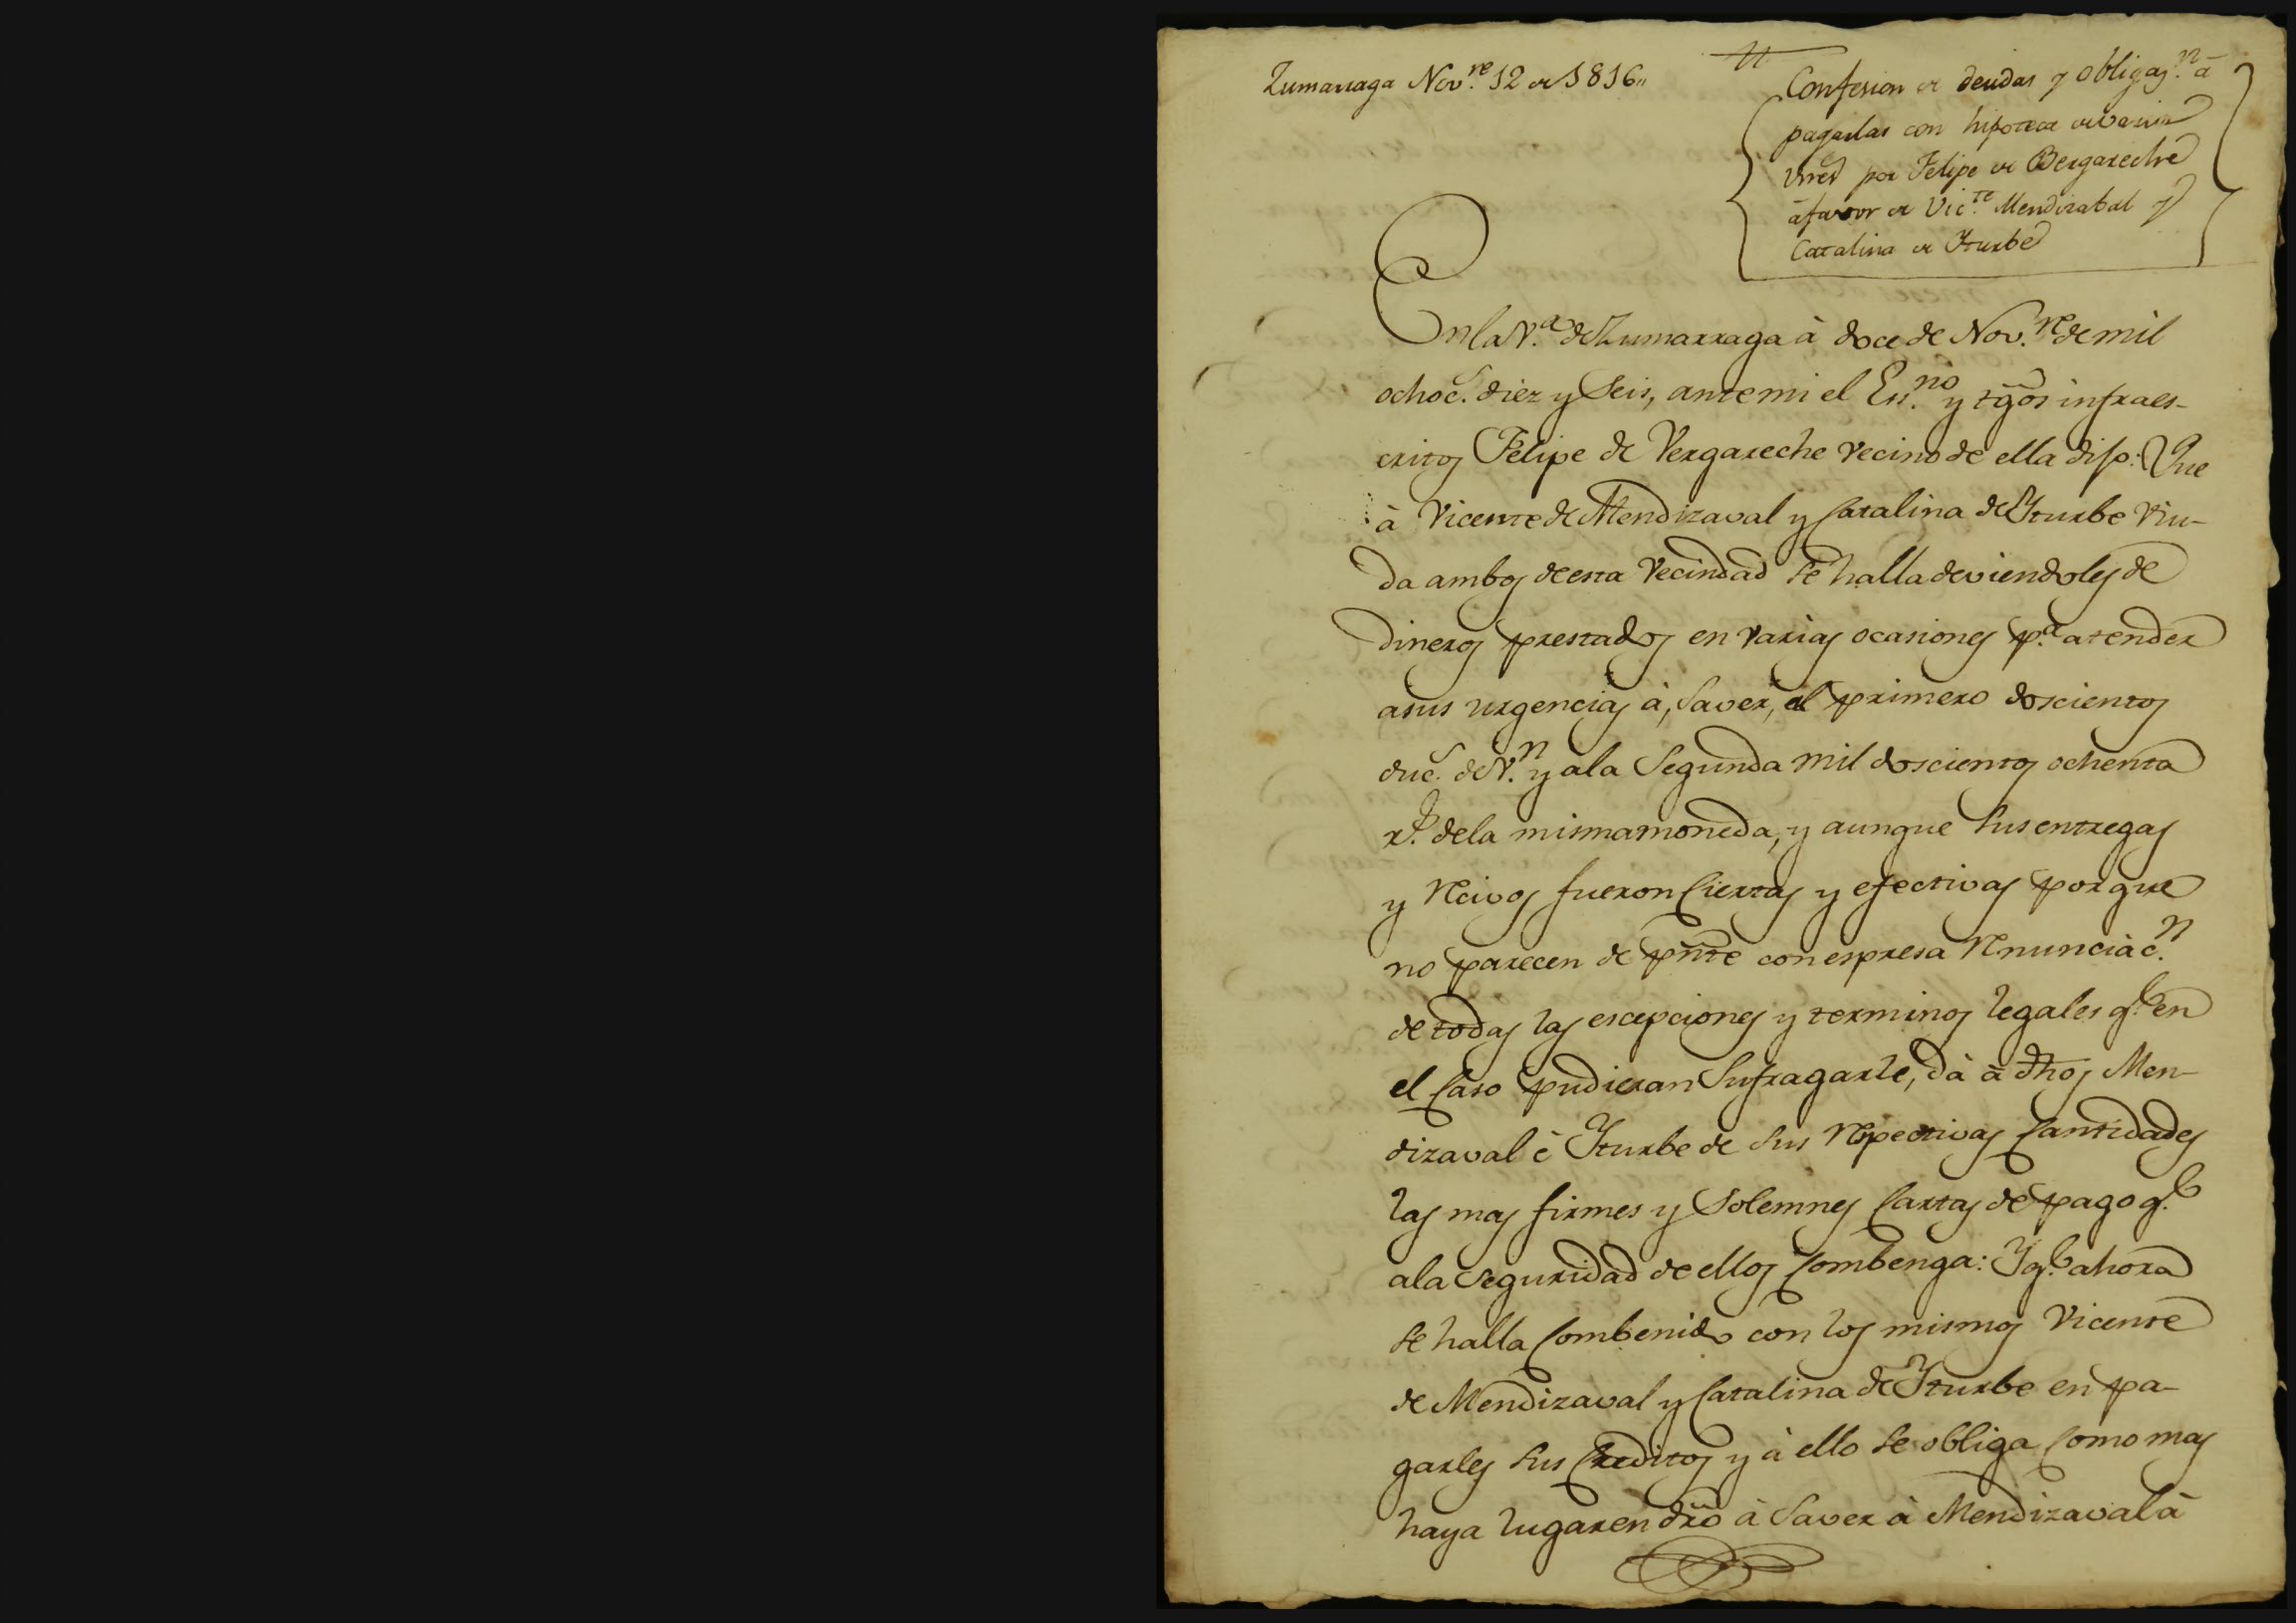 Zumarraga Nov.re 12 de 1816,,
Confesion de deudas y obligaz.n a
pagarlas con hipoteca de varios
vnes por Felipe de Bergareche
á favor de Vic.te Mendizabal y
Catalina de Yturbe
En la V.a de Zumarraga à doce de Nov.re de mil
ochoc.s diez y Seis, ante mi el Ess.no y tg̃os infraes-
critos Felipe de Vergareche vecino de ella dijo: Que
à Vicente de Mendizaval y Catalina de Yturbe viu-
da ambos de esta vecindad se halla deviendoles de
dineros prestados en varias ocasiones p.a atender
a sus urgencias à, saver, al primero doscientos
duc.s de V.n y a la Segunda mil doscientos ochenta
r.s de la misma moneda, y aunque sus entregas
y recivos fueron ciertas y efectivas porque
no parecen de pñte con espresa renunciàc.n
de todas las escepciones y terminos legales q.e en
el caso pudieran sufragarle, dà à dhos Men-
dizaval è Yturbe de sus respectivas cantidades
las mas firmes y solemnes cartas de pago q.e
a la seguridad de ellos combenga: Y q.e ahora
se halla combenido con los mismos Vicente
de Mendizaval y Catalina de Yturbe en pa-
garles sus creditos y à ello se obliga como mas
haya lugar en dr̃o à saver à Mendizaval à